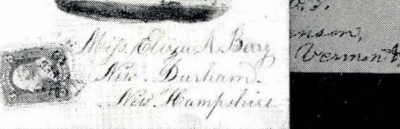 Miss Eliza A. Berry
New Durham.
New Hampshire
nson,
Vermont,